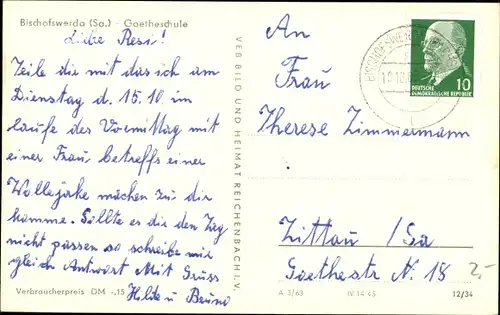 Bischofswerda (Sa.) - Goetheschule
Liebe Resi!
Teile die mit das ich am
Dienstag d. 15.10 im
laufe des Vormittag mit
einer Frau betreffs einer
Wolljake machen zu dir
komme. Sollte es die den Tag
nicht passen so schreibe mir
gleich Antwort Mit Gruss
Hilde u Bruno
Verbraucherpreis DM -,15
VEB BILD UND HEIMAT REICHENBACH I. V.
An
Frau
Therese Zimmermann
Zittau / Sa
Goethestr N. 18
2,-
BISCHOFSWERDA
DEUTSCHE
DEMOKRATISCHE REPUBLIK
10
A 3/63 IV-14-45 12/34